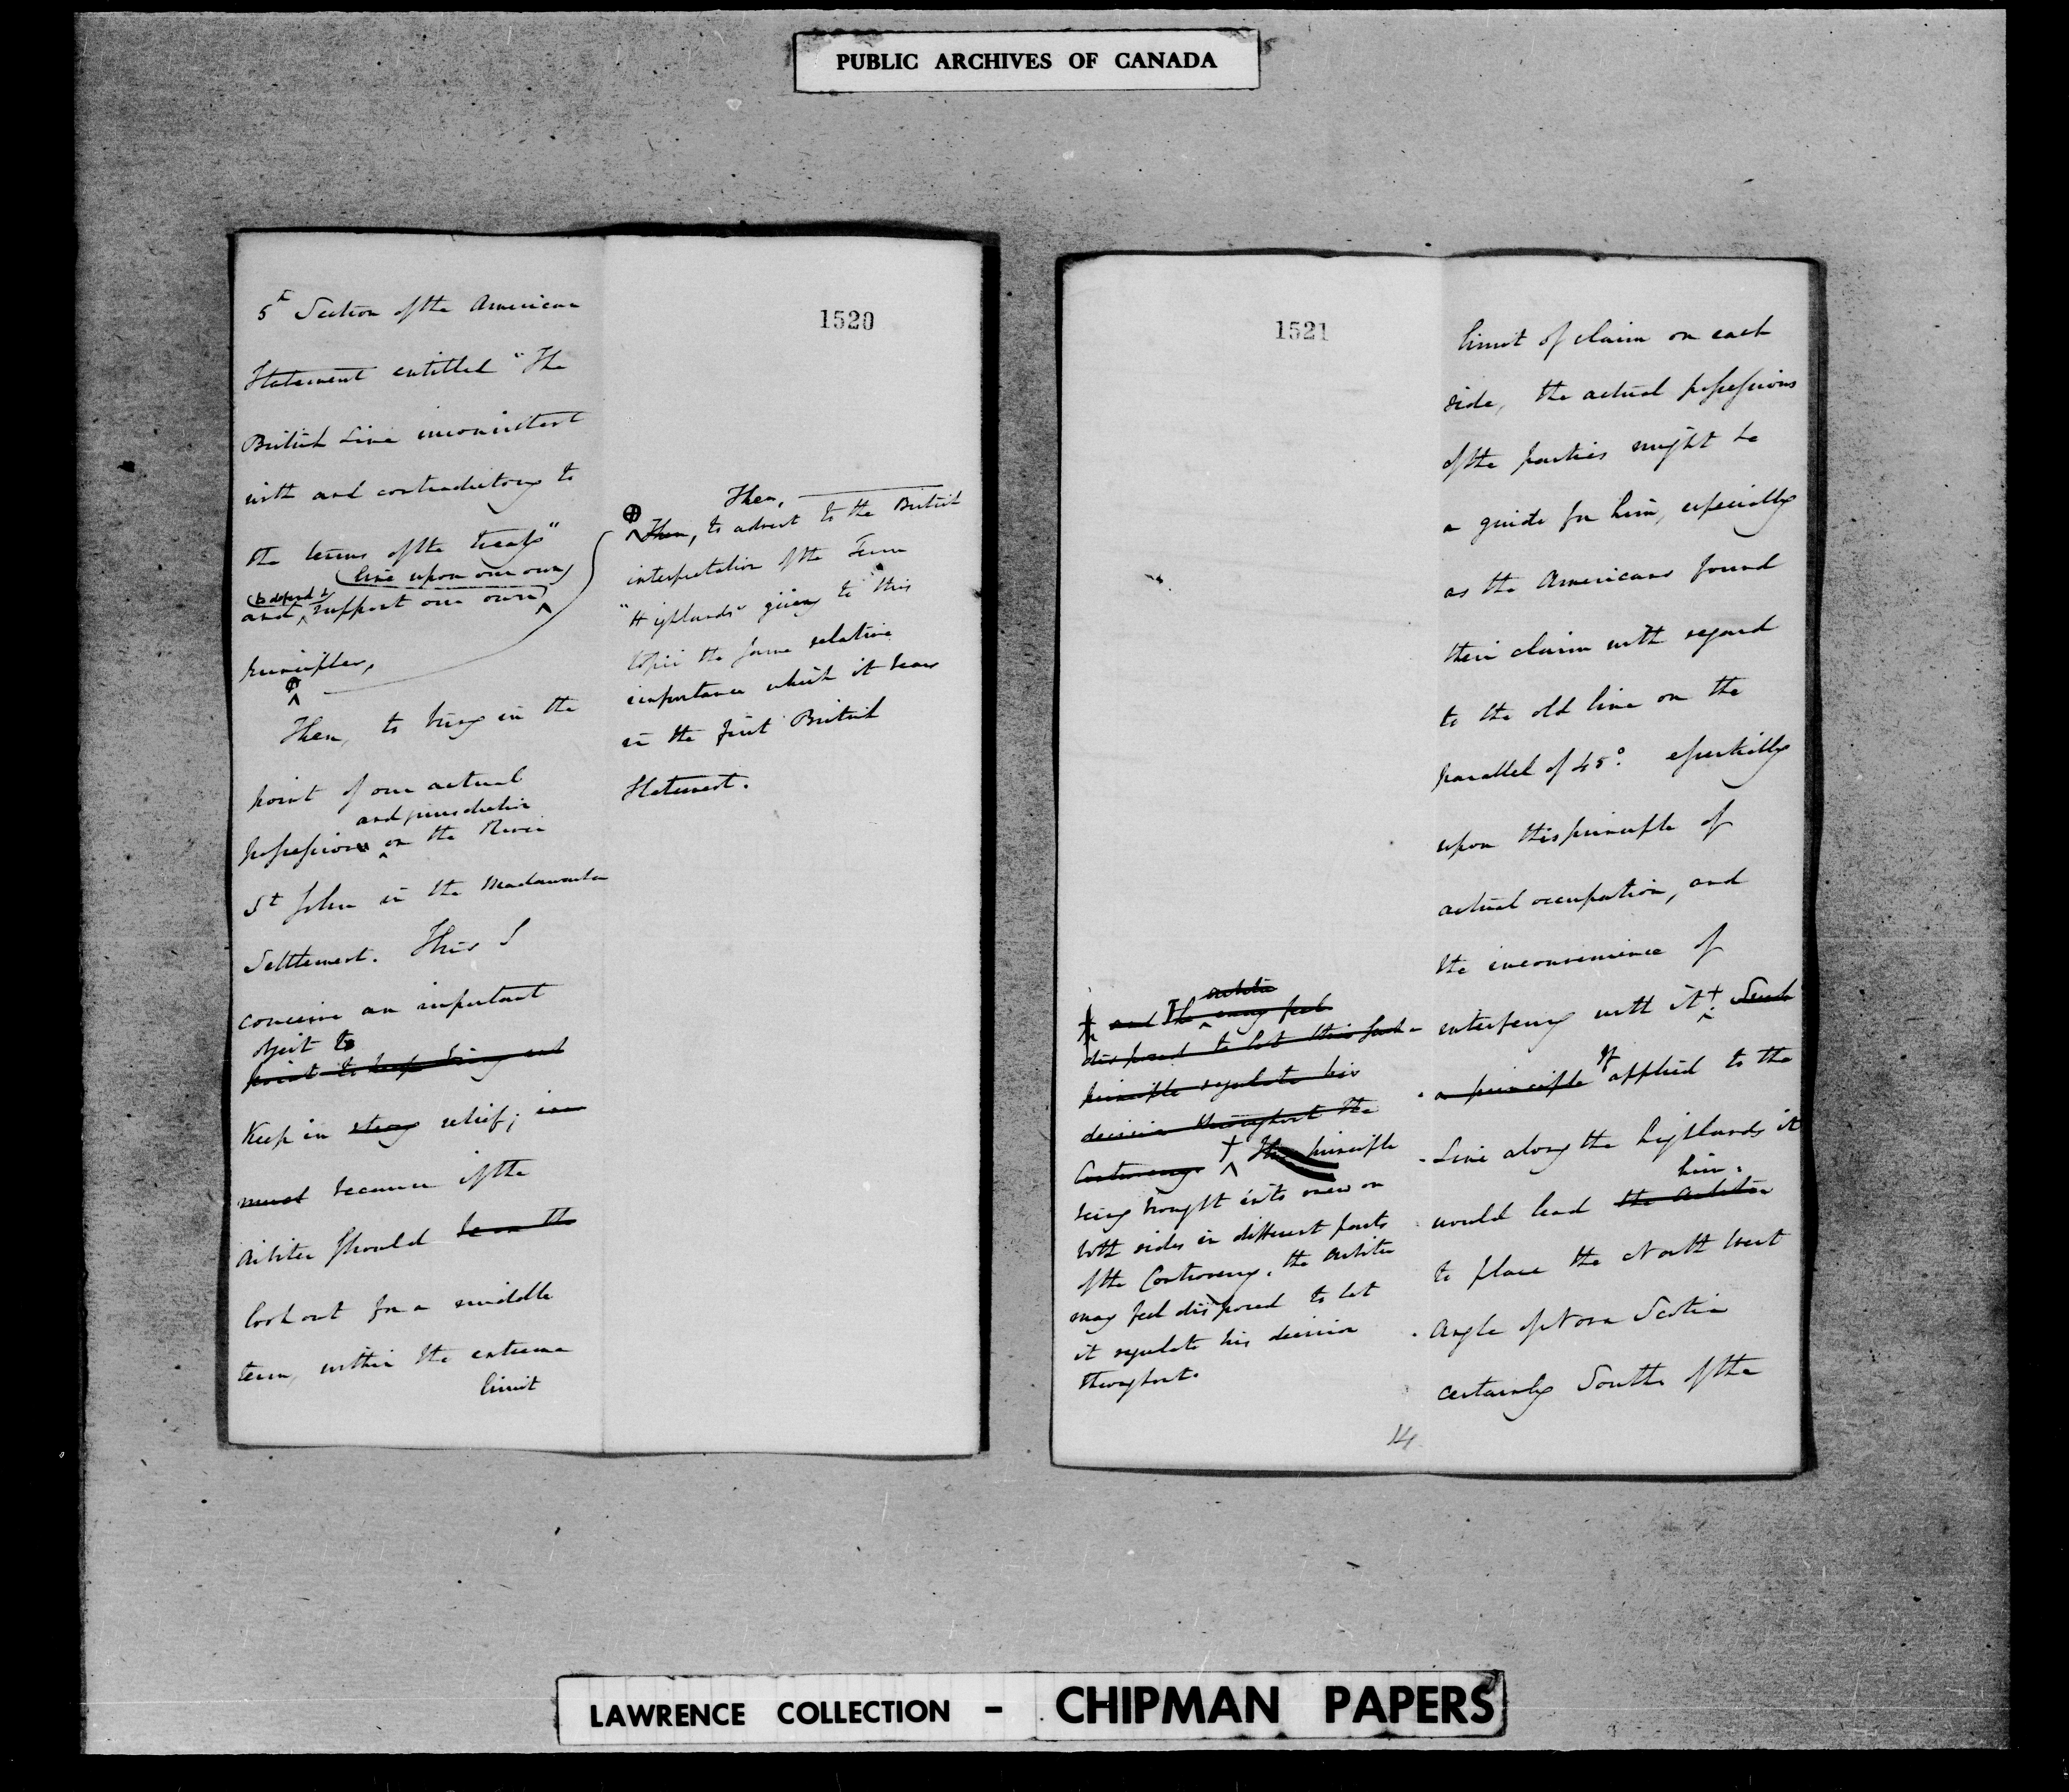 PUBLIC ARCHIVES OF CANADA
1520
5th Section of the American
Statement entitled "The
British Line inconsistent
with and contradictory to
the terms of the treaty"
line upon our own
to defend &
and support our own
principles,
Then, to bring in the
point of our actual
and jurisdiction
possession on the River
St John in the Madawaska
Settlement. This I
conceive an important
object to
point to keep
Keep in strong relief;
must because if the
Arbiter should be on the
look out for a middle
term, within the extreme
limit
Then,
Then, to advert to the British
interpretation of the Term
"Highlands" giving to this
topic the same relative
importance which it bears
in the first British
Statement.
1521
Arbiter
and The may feel
disposed to let this such
principle regulate his
decision throughout the
Controversy This principle
being brought into view on
both sides in different parts
of the Controversy, the Arbiter
may feel disposed to let
it regulate his decision
throughout.
14
limit of claim on each
side, the actual possessions
of the parties might be
a guide for him, especially
as the Americans found
their claim with regard
to the old line on the
parallel of 45° essentially
upon this principle of
actual occupation, and
the inconvenience of
interfering with it. Such
a principle If applied to the
Line along the highlands it
him
would lead the Arbiter
to place the North West
Angle of Nova Scotia
certainly South of the
LAWRENCE COLLECTION - CHIPMAN PAPERS